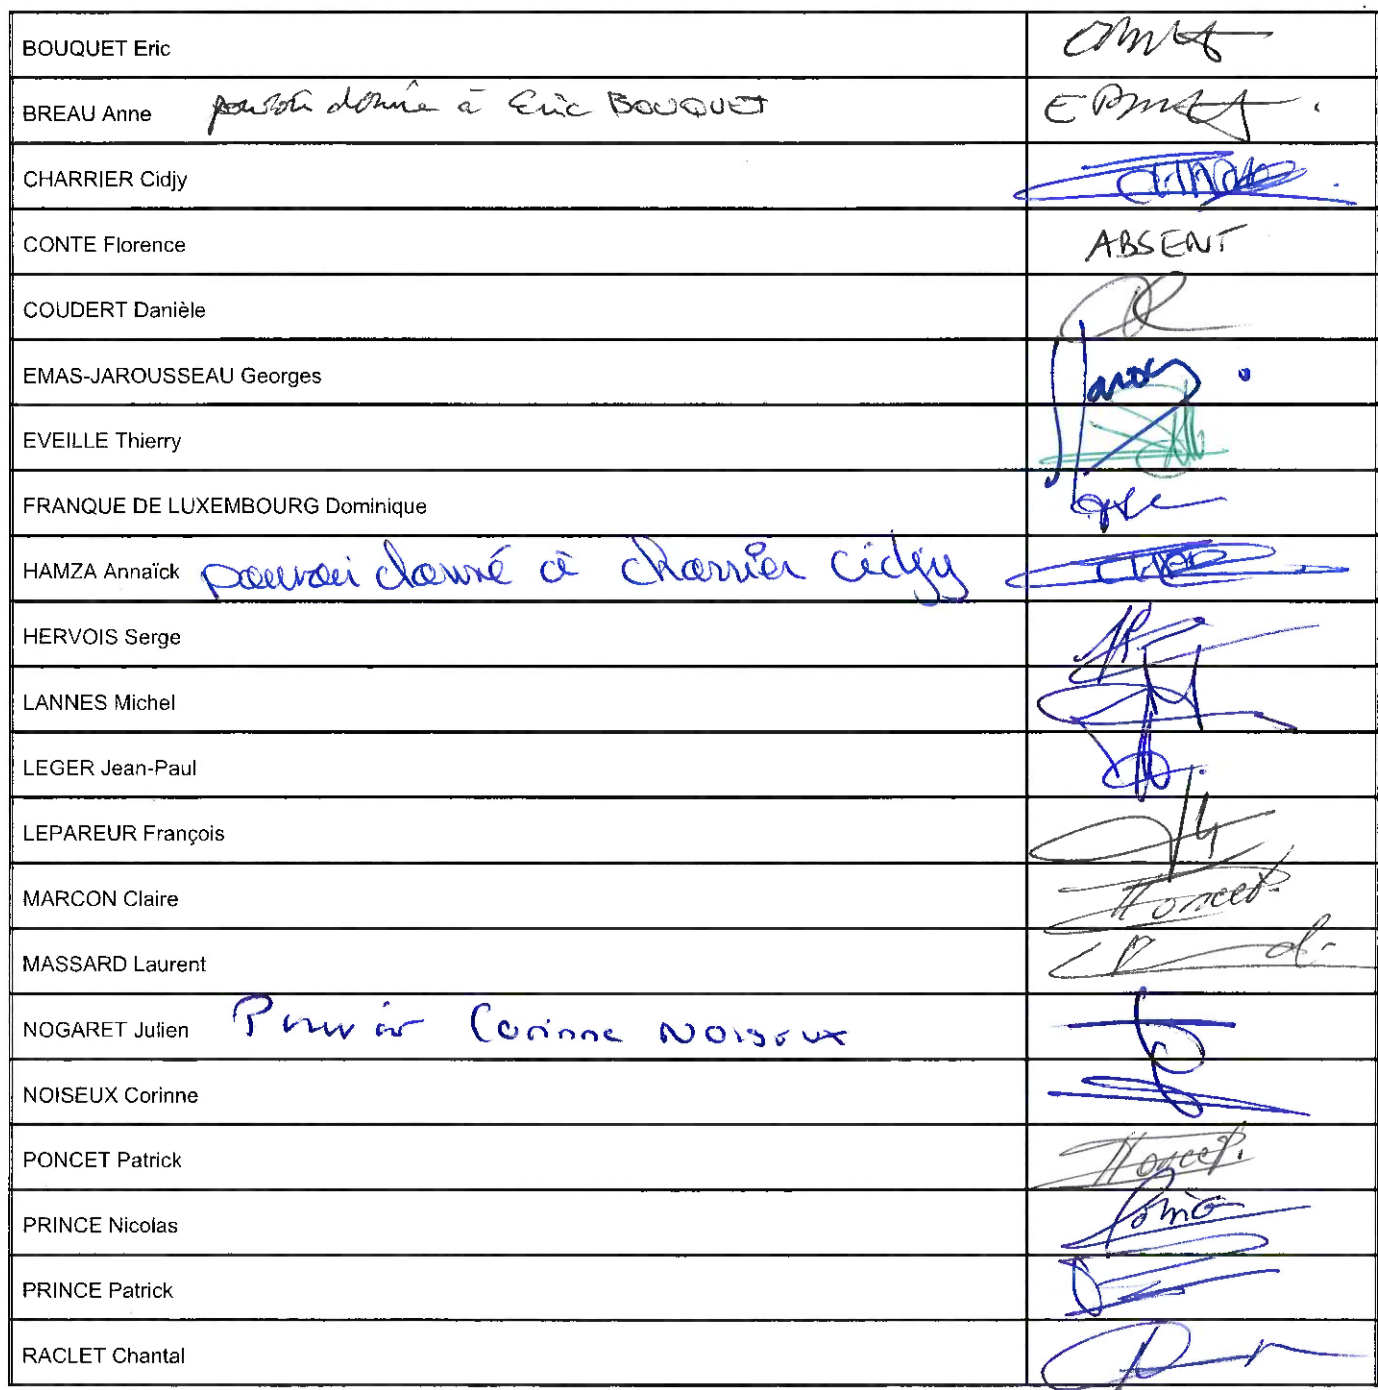 BOUQUET Eric
BREAU Anne pouvoir donnée à Eric BOUQUET
CHARRIER Cidjy
CONTE Florence ABSENT
COUDERT Danièle
EMAS-JAROUSSEAU Georges
EVEILLE Thierry
FRANQUE DE LUXEMBOURG Dominique
HAMZA Annaïck pouvoir donné à charrier Cidjy
HERVOIS Serge
LANNES Michel
LEGER Jean-Paul
LEPAREUR François
MARCON Claire Poncet
MASSARD Laurent
NOGARET Julien Pouvoir Corinne NOISEUX
NOISEUX Corinne
PONCET Patrick Poncet
PRINCE Nicolas
PRINCE Patrick
RACLET Chantal